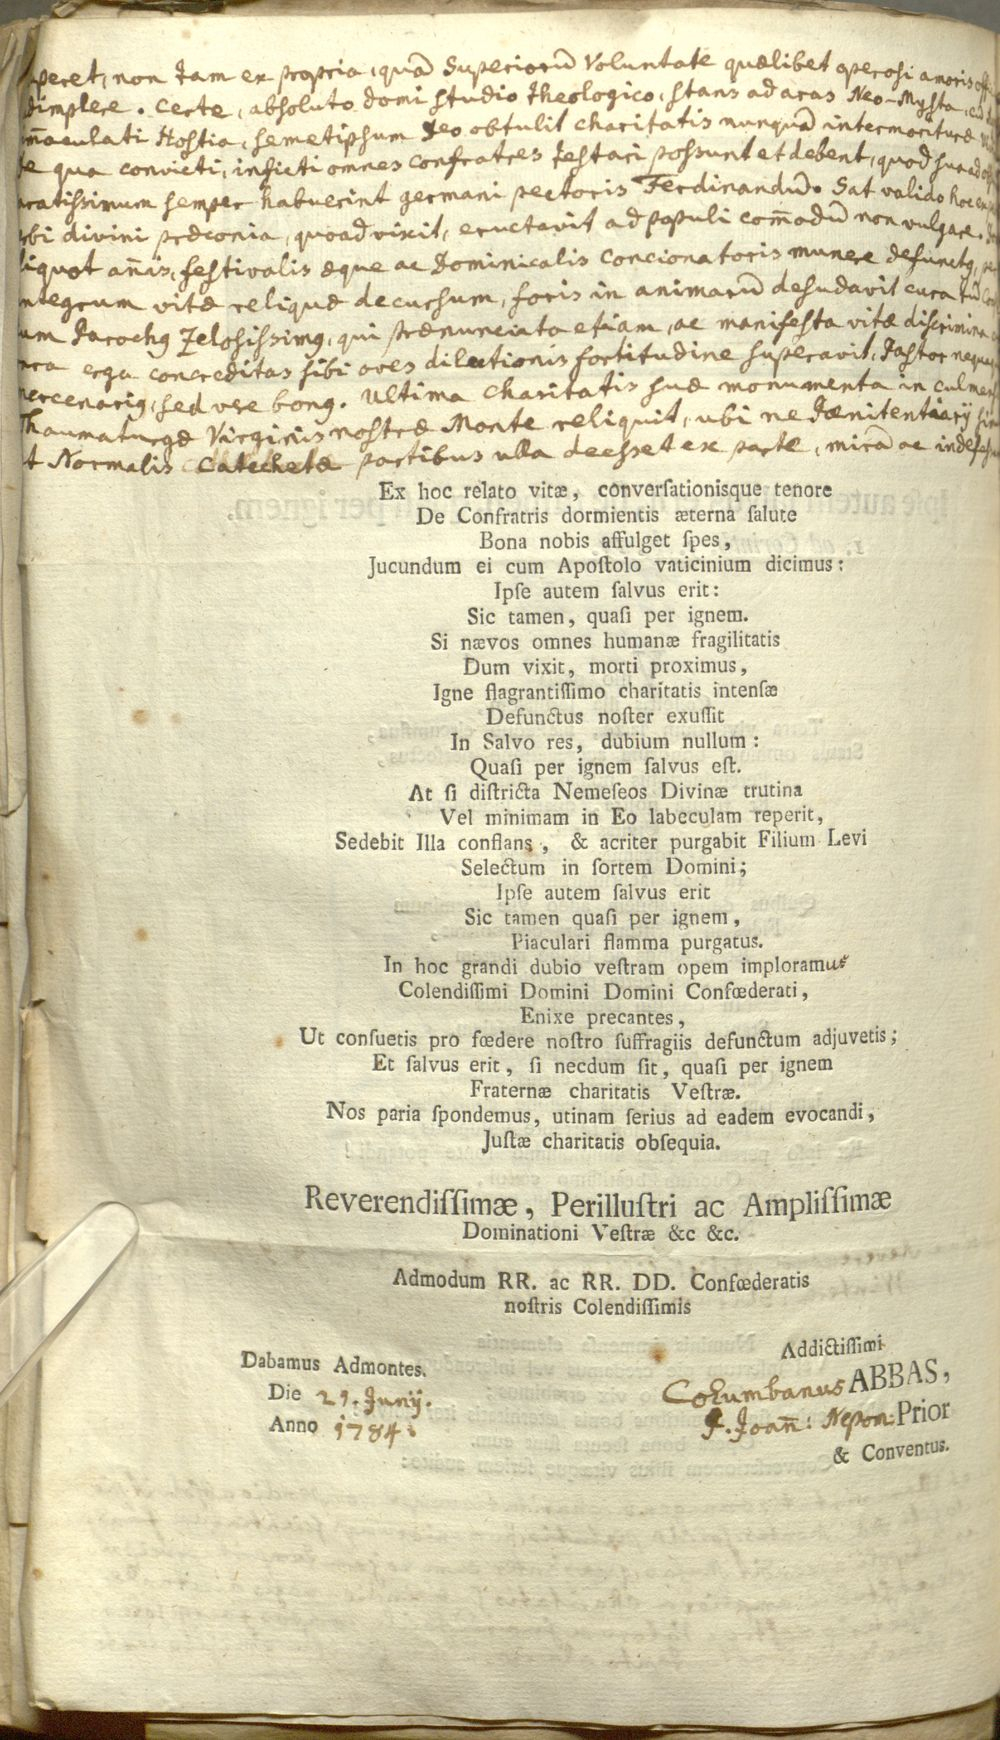 peret, non tam ex propria, quā Superiorū Voluntate quælibet operosi amoris
dimplere. Certe, absoluto domi studio theologico, stans ad aras Neo-Mysta,
maculati Hostia, semetipsum Deo obtulit charitatis nunquā intermorituræ
qua convicti, inficti omnes confratres testari possunt et debent, quod
gratissimum semper habuerint germani pectoris Ferdinandū. Sat valido hoc
divini præconia, quoad vixit, eructavit ad populi com̄odū non vulgare.
liquot an̄is, festivalis æque ac Dominicalis Concionatoris munere defunctq,
ntegrum vitæ reliquæ decursum, foris in animarū desudavit cura
um Parochq Zelosissimq, qui prænunciata etiam, ac manifesta vitæ discrimina
erga concreditas sibi oves dilectionis fortitudine superavit, Pastor
mercenariq, sed vere bonq. Ultima charitatis suæ monumenta in culmen
Thaumaturgæ Virginis nostræ Monte reliquit, ubi ne Pænitentiarij
t Normalis Catechetæ partibus ulla deesset ex parte, mirā ac
Ex hoc relato vitæ, converſationisque tenore
De Confratris dormientis æterna ſalute
Bona nobis affulget ſpes,
Jucundum ei cum Apoſtolo vaticinium dicimus:
Ipſe autem ſalvus erit:
Sic tamen, quaſi per ignem.
Si nævos omnes humanæ fragilitatis
Dum vixit, morti proximus,
Igne flagrantiſſimo charitatis intenſæ
Defunctus noſter exuſſit
In Salvo res, dubium nullum:
Quaſi per ignem ſalvus eſt.
At ſi diſtricta Nemeſeos Divinæ trutina
Vel minimam in Eo labeculam reperit,
Sedebit Illa conflans, & acriter purgabit Filium Levi
Selectum in ſortem Domini;
Ipſe autem ſalvus erit
Sic tamen quaſi per ignem,
Piaculari flamma purgatus.
In hoc grandi dubio veſtram opem imploramus
Colendiſſimi Domini Domini Confœderati,
Enixe precantes,
Ut conſuetis pro fœdere noſtro ſuffragiis defunctum adjuvetis;
Et ſalvus erit, ſi necdum ſit, quaſi per ignem
Fraternæ charitatis Veſtræ.
Nos paria ſpondemus, utinam ſerius ad eadem evocandi,
Juſtæ charitatis obſequia.
Reverendiſſimæ, Perilluſtri ac Ampliſſimæ
Dominationi Veſtræ &c &c.
Admodum RR. ac RR. DD. Confœderatis
noſtris Colendiſſimis
Addictiſſimi
Dabamus Admontes.
Columbanus ABBAS,
Die 29. Junij.
P. Joan̄: Nepom: Prior
Anno 1784.
& Conventus.